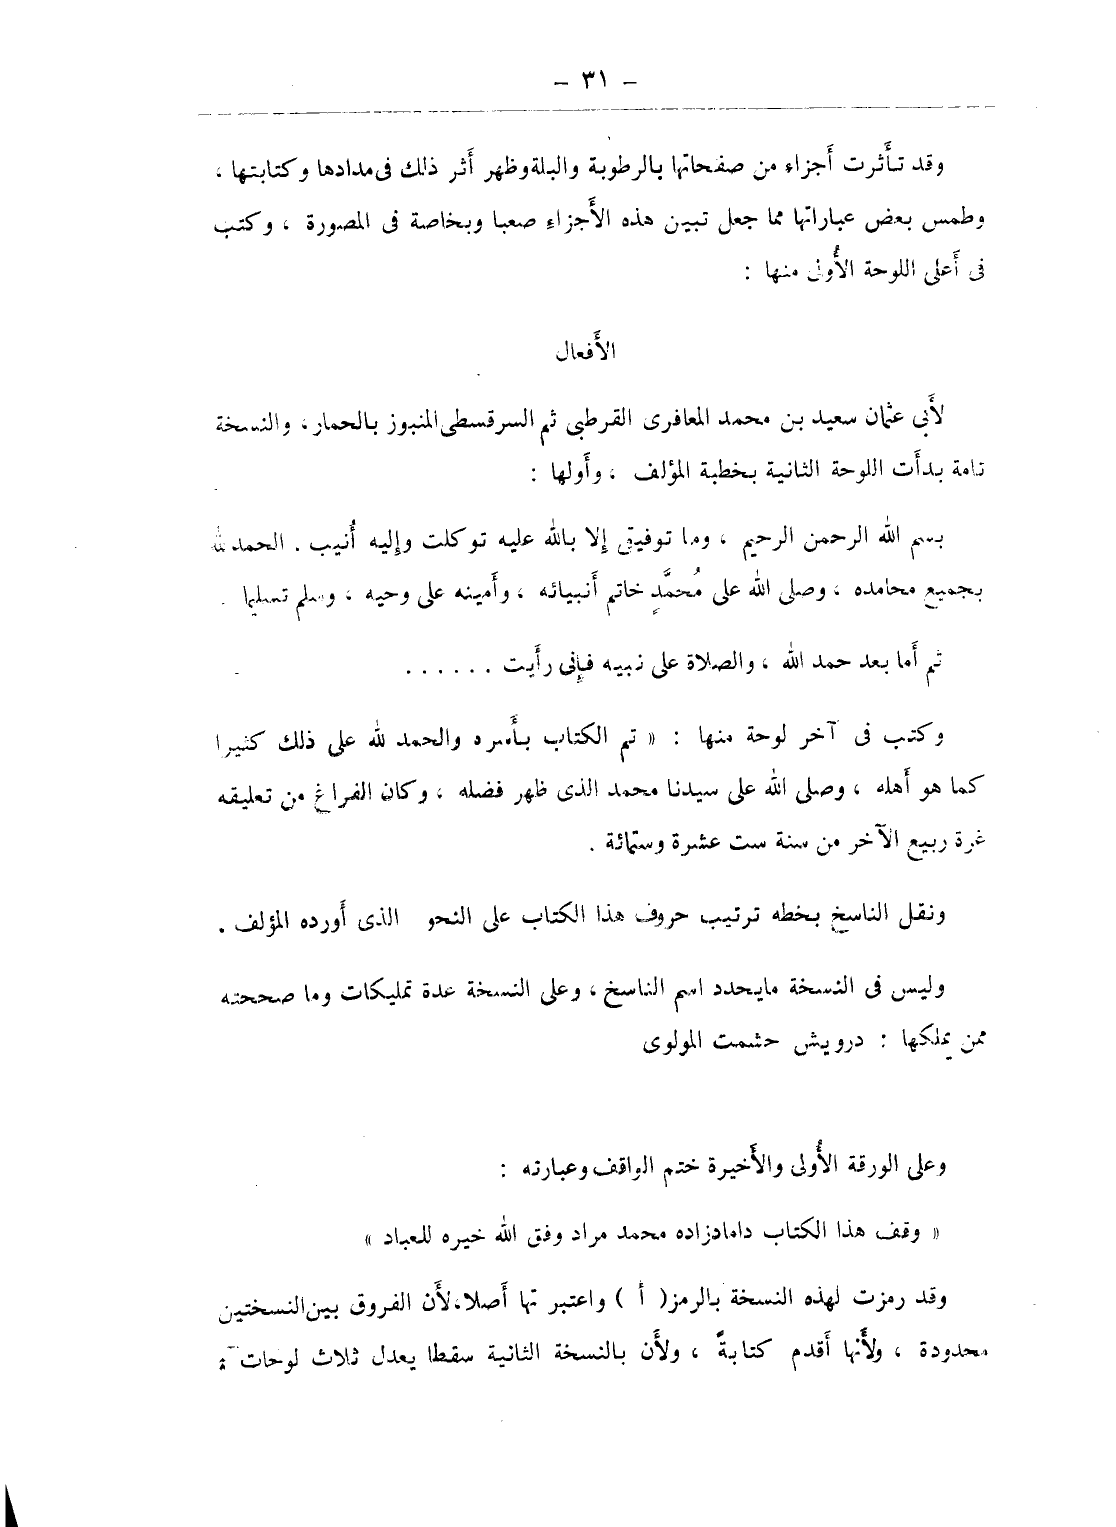 – ٣١ –
وقد تأَثرت أَجزاء من صفحاتها بالرطوبة والبلة وظهر أَثر ذلك فى مدادها وكتابتها ،
وطمس بعض عباراتها مما جعل تبين هذه الأَجزاءِ صعبا وبخاصة فى المصورة ، وكتب
فى أَعلى اللوحة الأُولى منها :
الأَفعال
لأَبى عثمان سعيد بن محمد المعافرى القرطبى ثم السرقسطى المنبوز بالحمار ، والنسخة
تامة بدأَت اللوحة الثانية بخطبة المؤلف ، وأَولها :
بسم الله الرحمن الرحيم ، وما توفيقى إِلا بالله عليه توكلت وإِليه أُنيب . الحمد لله
بجميع محامده ، وصلى الله على مُحمَّدٍ خاتم أَنبيائه ، وأَمينه على وحيه ، وسلم تسليما .
ثم أَما بعد حمد الله ، والصلاة على نبيه فإِنى رأَيت . . . . . .
وكتب فى آخر لوحة منها : « تم الكتاب بأَسره والحمد لله على ذلك كثيرا
كما هو أَهله ، وصلى الله على سيدنا محمد الذى ظهر فضله ، وكان الفراغ من تعليقه
غرة ربيع الآخر من سنة ست عشرة وستمائة .
ونقل الناسخ بخطه ترتيب حروف هذا الكتاب على النحو الذى أَورده المؤلف .
وليس فى النسخة مايحدد اسم الناسخ ، وعلى النسخة عدة تمليكات وما صححته
ممن يملكها : درويش حشمت المولوى
وعلى الورقة الأُولى والأَخيرة ختم الواقف وعبارته :
« وقف هذا الكتاب دامادزاده محمد مراد وفق الله خيره للعباد »
وقد رمزت لهذه النسخة بالرمز ( أ ) واعتبرتها أَصلا، لأَن الفروق بين النسختين
محدودة ، ولأَنها أَقدم كتابةً ، ولأَن بالنسخة الثانية سقطا يعدل ثلاث لوحات